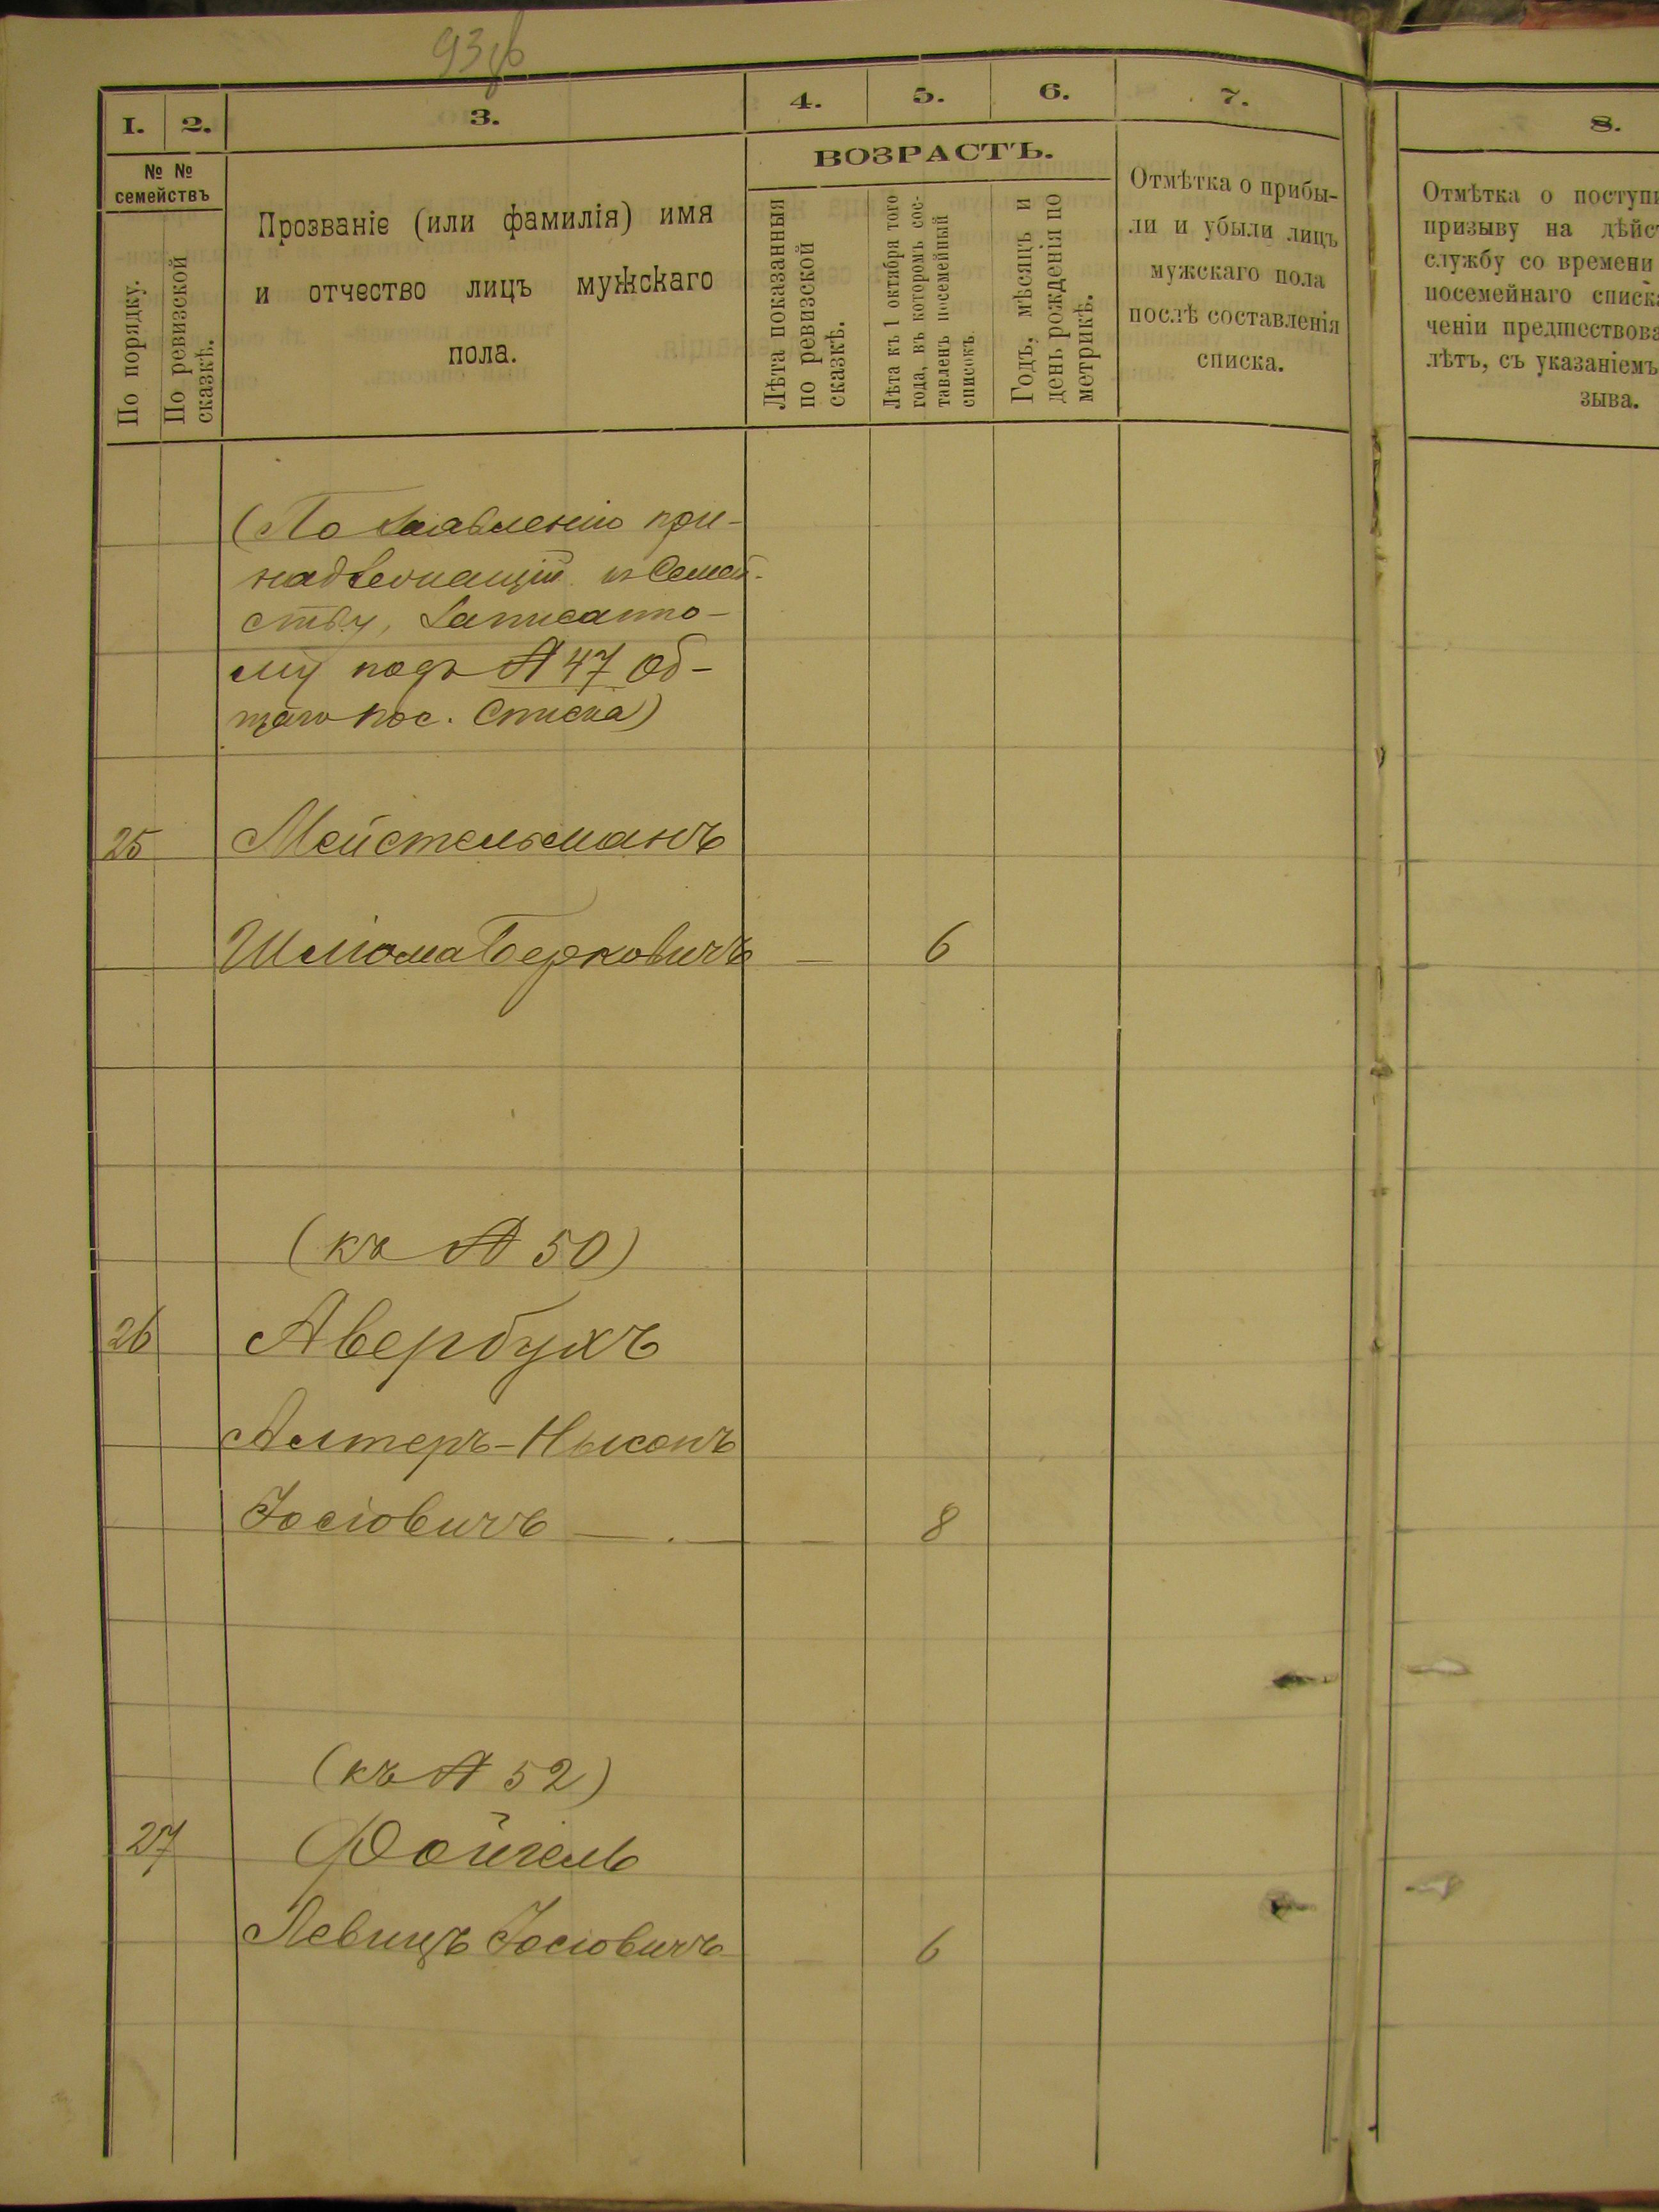 93об
1.
2.
3.
4.
5.
6.
7.
8.
№ №
семействъ
По порядку.
По ревизской
сказкѣ.
Прозваніе (или фамилія) имя
и отчество лицъ мужскаго
пола.
ВОЗРАСТЪ.
Лѣта показанныя
по ревизской
сказкѣ.
Лѣта къ 1 октября того
года, въ которомъ сос-
тавленъ посемейный
списокъ
Годъ, мѣсяцъ и
день рожденія по
метрикѣ.
Отмѣтка о прибы-
ли и убыли лицъ
мужскаго пола
послѣ составленія
списка.
Отмѣтка о поступи
призыву на дѣйс
службу со времени
посемейнаго списка
ченіи предшествова
лѣтъ, съ указаніемъ
зыва.
(По заявленію при-
надлежащій къ семей-
ству, записанно-
му подъ № 47 об-
щаго пос. списка)
25 Мейстельманъ
Шліома Берковичъ — 6
(къ № 50)
26 Авербухъ
Алтеръ-Нысонъ
Іосіовичъ — . — — 8
(къ № 52)
27 Фойгель
Левицъ Іосіовичъ — 6